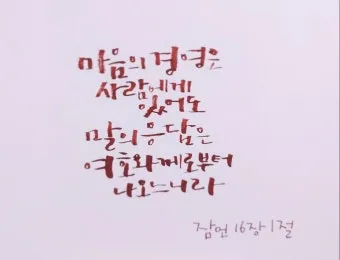 마음의 경영은
사람에게
있어도
말의 응답은
여호와께로부터
나오느니라
잠언 16장 1절